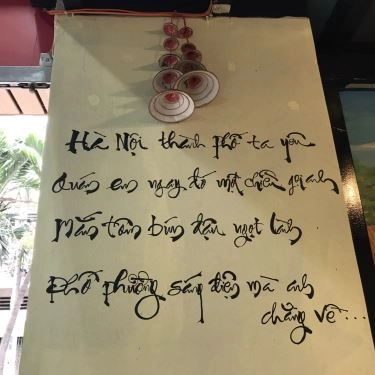 Hà Nội thành phố ta yêu
Quán em ngay đó một chiều gọi anh
Mắm tôm bún đậu ngọt lành
Phố phường sáng điện mà anh
chẳng về...